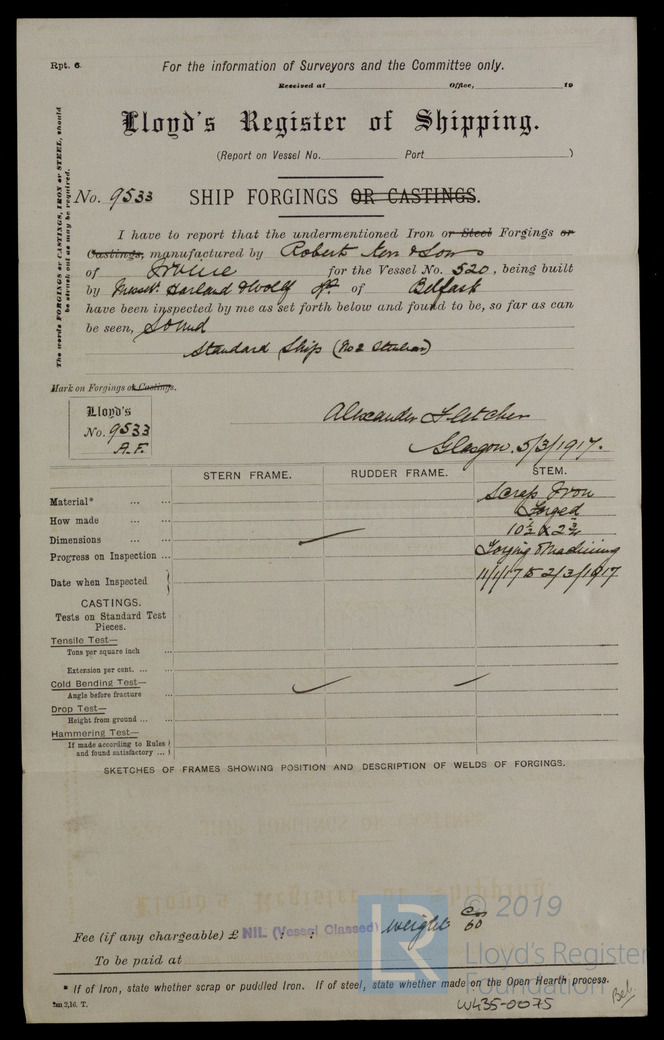 Rpt. 6.
For the information of Surveyors and the Committee only.
Received at Office, 19
Lloyd's Register of Shipping.
(Report on Vessel No. Port )
The words FORGINGS or CASTINGS, IRON or STEEL, should be struck out as may be required.
No. 9533 SHIP FORGINGS OR CASTINGS.
I have to report that the undermentioned Iron or Steel Forgings or
Castings, manufactured by Robert Kerr & Sons
of Irvine for the Vessel No. 520, being built
by Messrs. Harland & Wolff of Belfast
have been inspected by me as set forth below and found to be, so far as can
be seen, Sound
Standard Ship (No 2 Steamer)
Mark on Forgings or Castings.
Lloyd's
No. 9533
A.F.
Alexander Fletcher
Glasgow. 5/3/1917.
STERN FRAME. RUDDER FRAME. STEM.
Material* ... ... Scrap Iron
How made ... ... Forged
Dimensions ... ... 10½ x 2¾
Progress on Inspection ... Forging & Machining
Date when Inspected 11/1/17 to 2/3/1917
CASTINGS.
Tests on Standard Test
Pieces.
Tensile Test—
Tons per square inch ...
Extension per cent. ... ...
Cold Bending Test—
Angle before fracture ...
Drop Test—
Height from ground ... ...
Hammering Test—
If made according to Rules
and found satisfactory ...
SKETCHES OF FRAMES SHOWING POSITION AND DESCRIPTION OF WELDS OF FORGINGS.
Fee (if any chargeable) £ NIL (Vessel Classed) weight
To be paid at
* If of Iron, state whether scrap or puddled Iron. If of steel, state whether made on the Open Hearth process.
W435-0075
Bel.
LR
© 2019
Lloyd's Register
Foundation